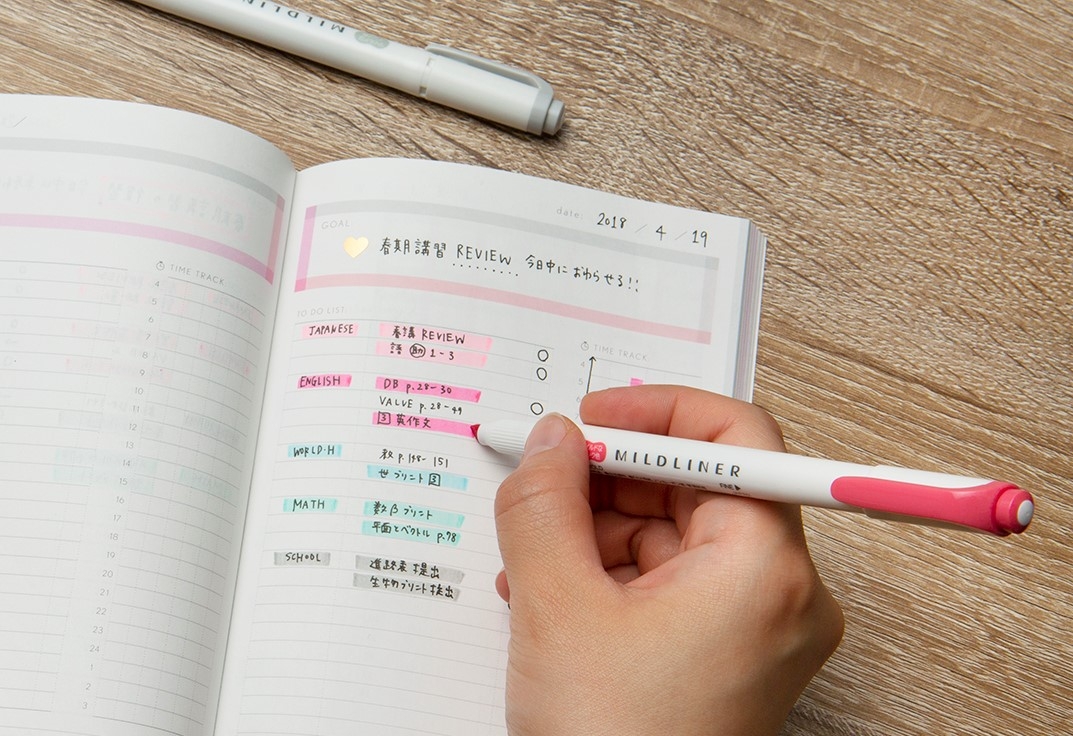 MILDLINER
date: 2018 / 4 / 19
GOAL
春期講習 REVIEW 今日中におわらせる!!
TO DO LIST
JAPANESE 春講 REVIEW
語 助 1-3
ENGLISH DB p.28-30
VALUE p.28-49
英作文
WORLD·H 教 p.148-151
世プリント
MATH 数βプリント
平面とベクトル p.78
SCHOOL 進路表 提出
生物プリント 提出
TIME TRACK
4
5
TIME TRACK
4
5
6
7
8
9
10
11
12
13
14
15
16
17
18
19
20
21
22
23
24
1
2
3
MILDLINER